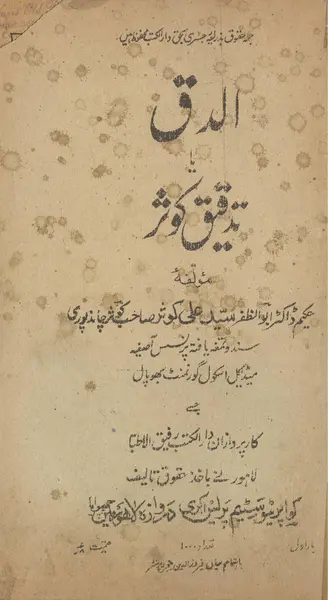 جملہ حقوق بذریعہ رجسٹری بحق دارالکتب محفوظ ہیں
الدق
یا
تدقیق کوثر
مؤلفہٴ
حکیم ڈاکٹر ابوالظفر سید علی کوثر صاحب کوثر چاندپوری
سند و تمغہ یافتہ پرنسس آصفیہ
میڈیکل اسکول گورنمنٹ بھوپال
جسے
کارپردازان دارالکتب رفیق الاطبا
لاہور نے باخذ حقوق تالیف
کواپریٹو سٹیم پریس اکبری دروازہ لاہور میں چھپوایا
بار اول
تعداد ۱۰۰۰
قیمت
باہتمام میاں